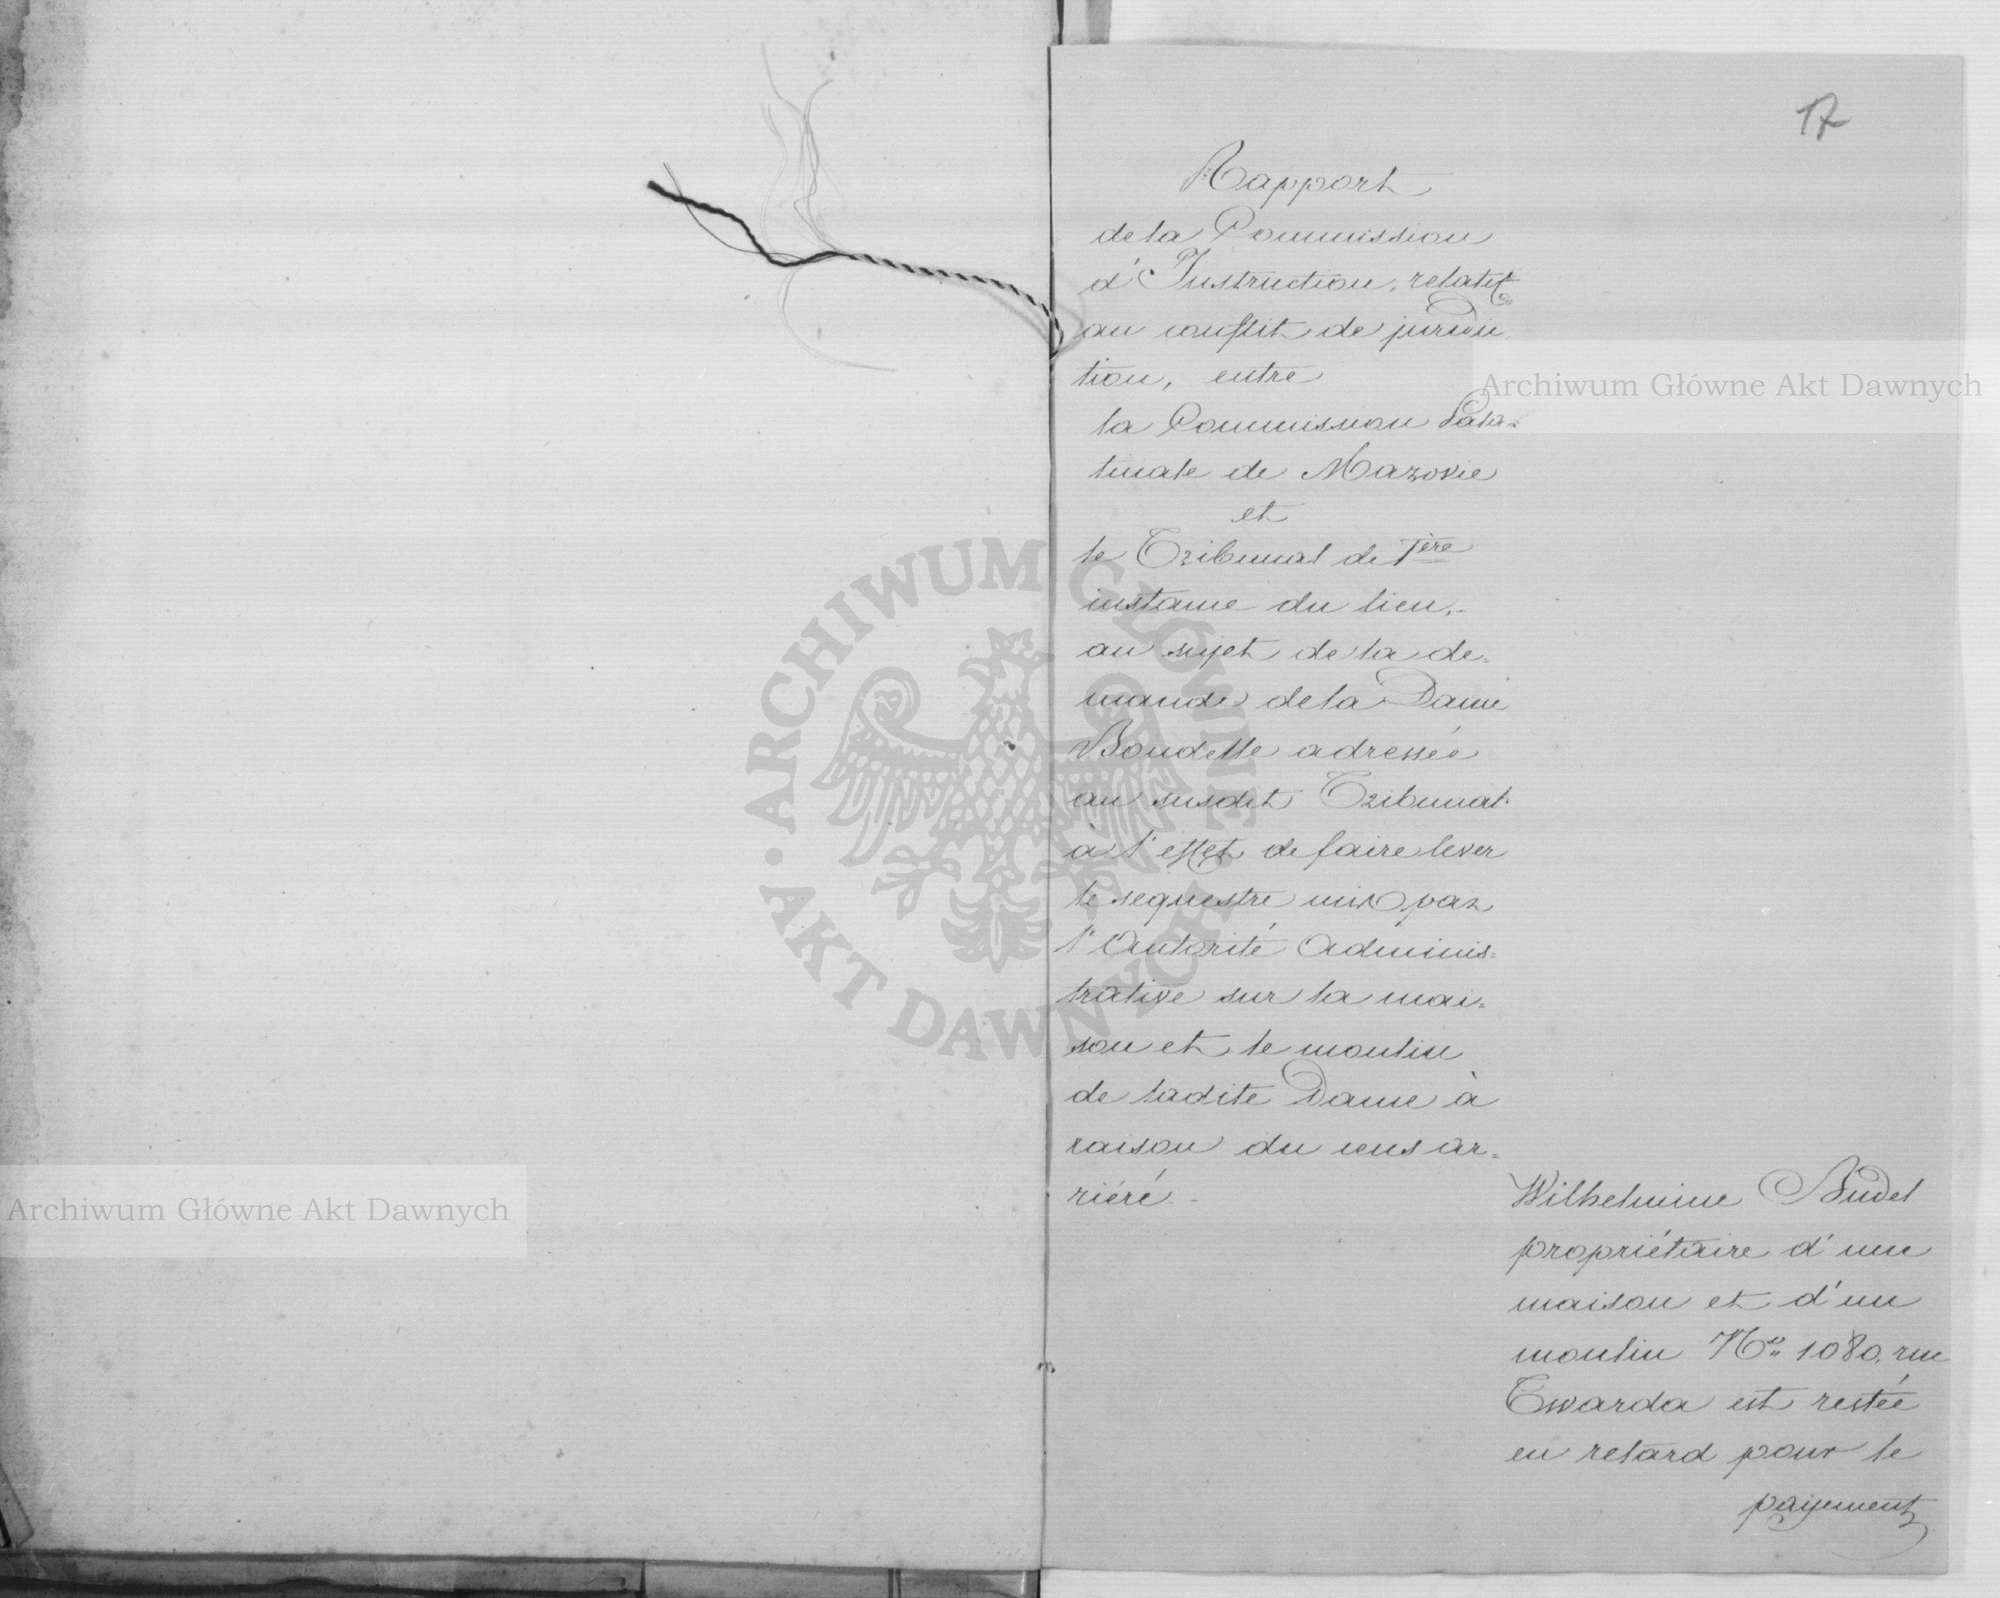 17
Rapport
de la Commission
d'Instruction, relatif
au conflit de juridic
tion, entre
la Commission Pala=
tinale de Mazovie
et
le Tribunal de 1ère
instance du lieu,-
au sujet de la de=
mande de la Dame
adressée
au susdit Tribunal
à l'effet de faire lever
le sequestre mis par
l'Autorité Adminis=
trative sur la mai=
son et le moulin
de ladite Dame à
raison du cens ar=
riéré.-
Wilhelmine
propriétaire d'une
maison et d'un
moulin No 1080, rue
Twarda est restée
en retard pour le
payement
Archiwum Główne Akt Dawnych
Archiwum Główne Akt Dawnych
ARCHIWUM GŁÓWNE · AKT DAWNYCH ·